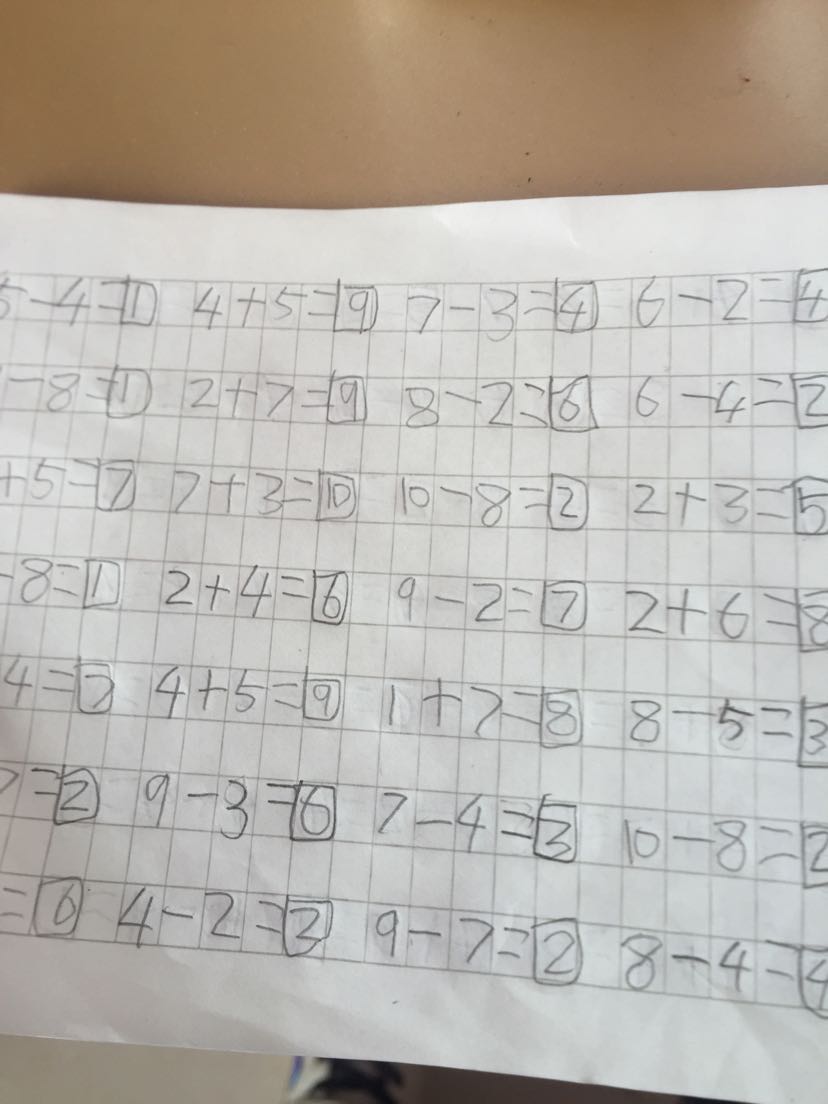 5-4=1 4+5=9 7-3=4 6-2=4
-8=1 2+7=9 8-2=6 6-4=2
+5=7 7+3=10 10-8=2 2+3=5
-8=1 2+4=6 9-2=7 2+6=8
4=7 4+5=9 1+7=8 8-5=3
7=2 9-3=6 7-4=3 10-8=2
=6 4-2=2 9-7=2 8-4=4